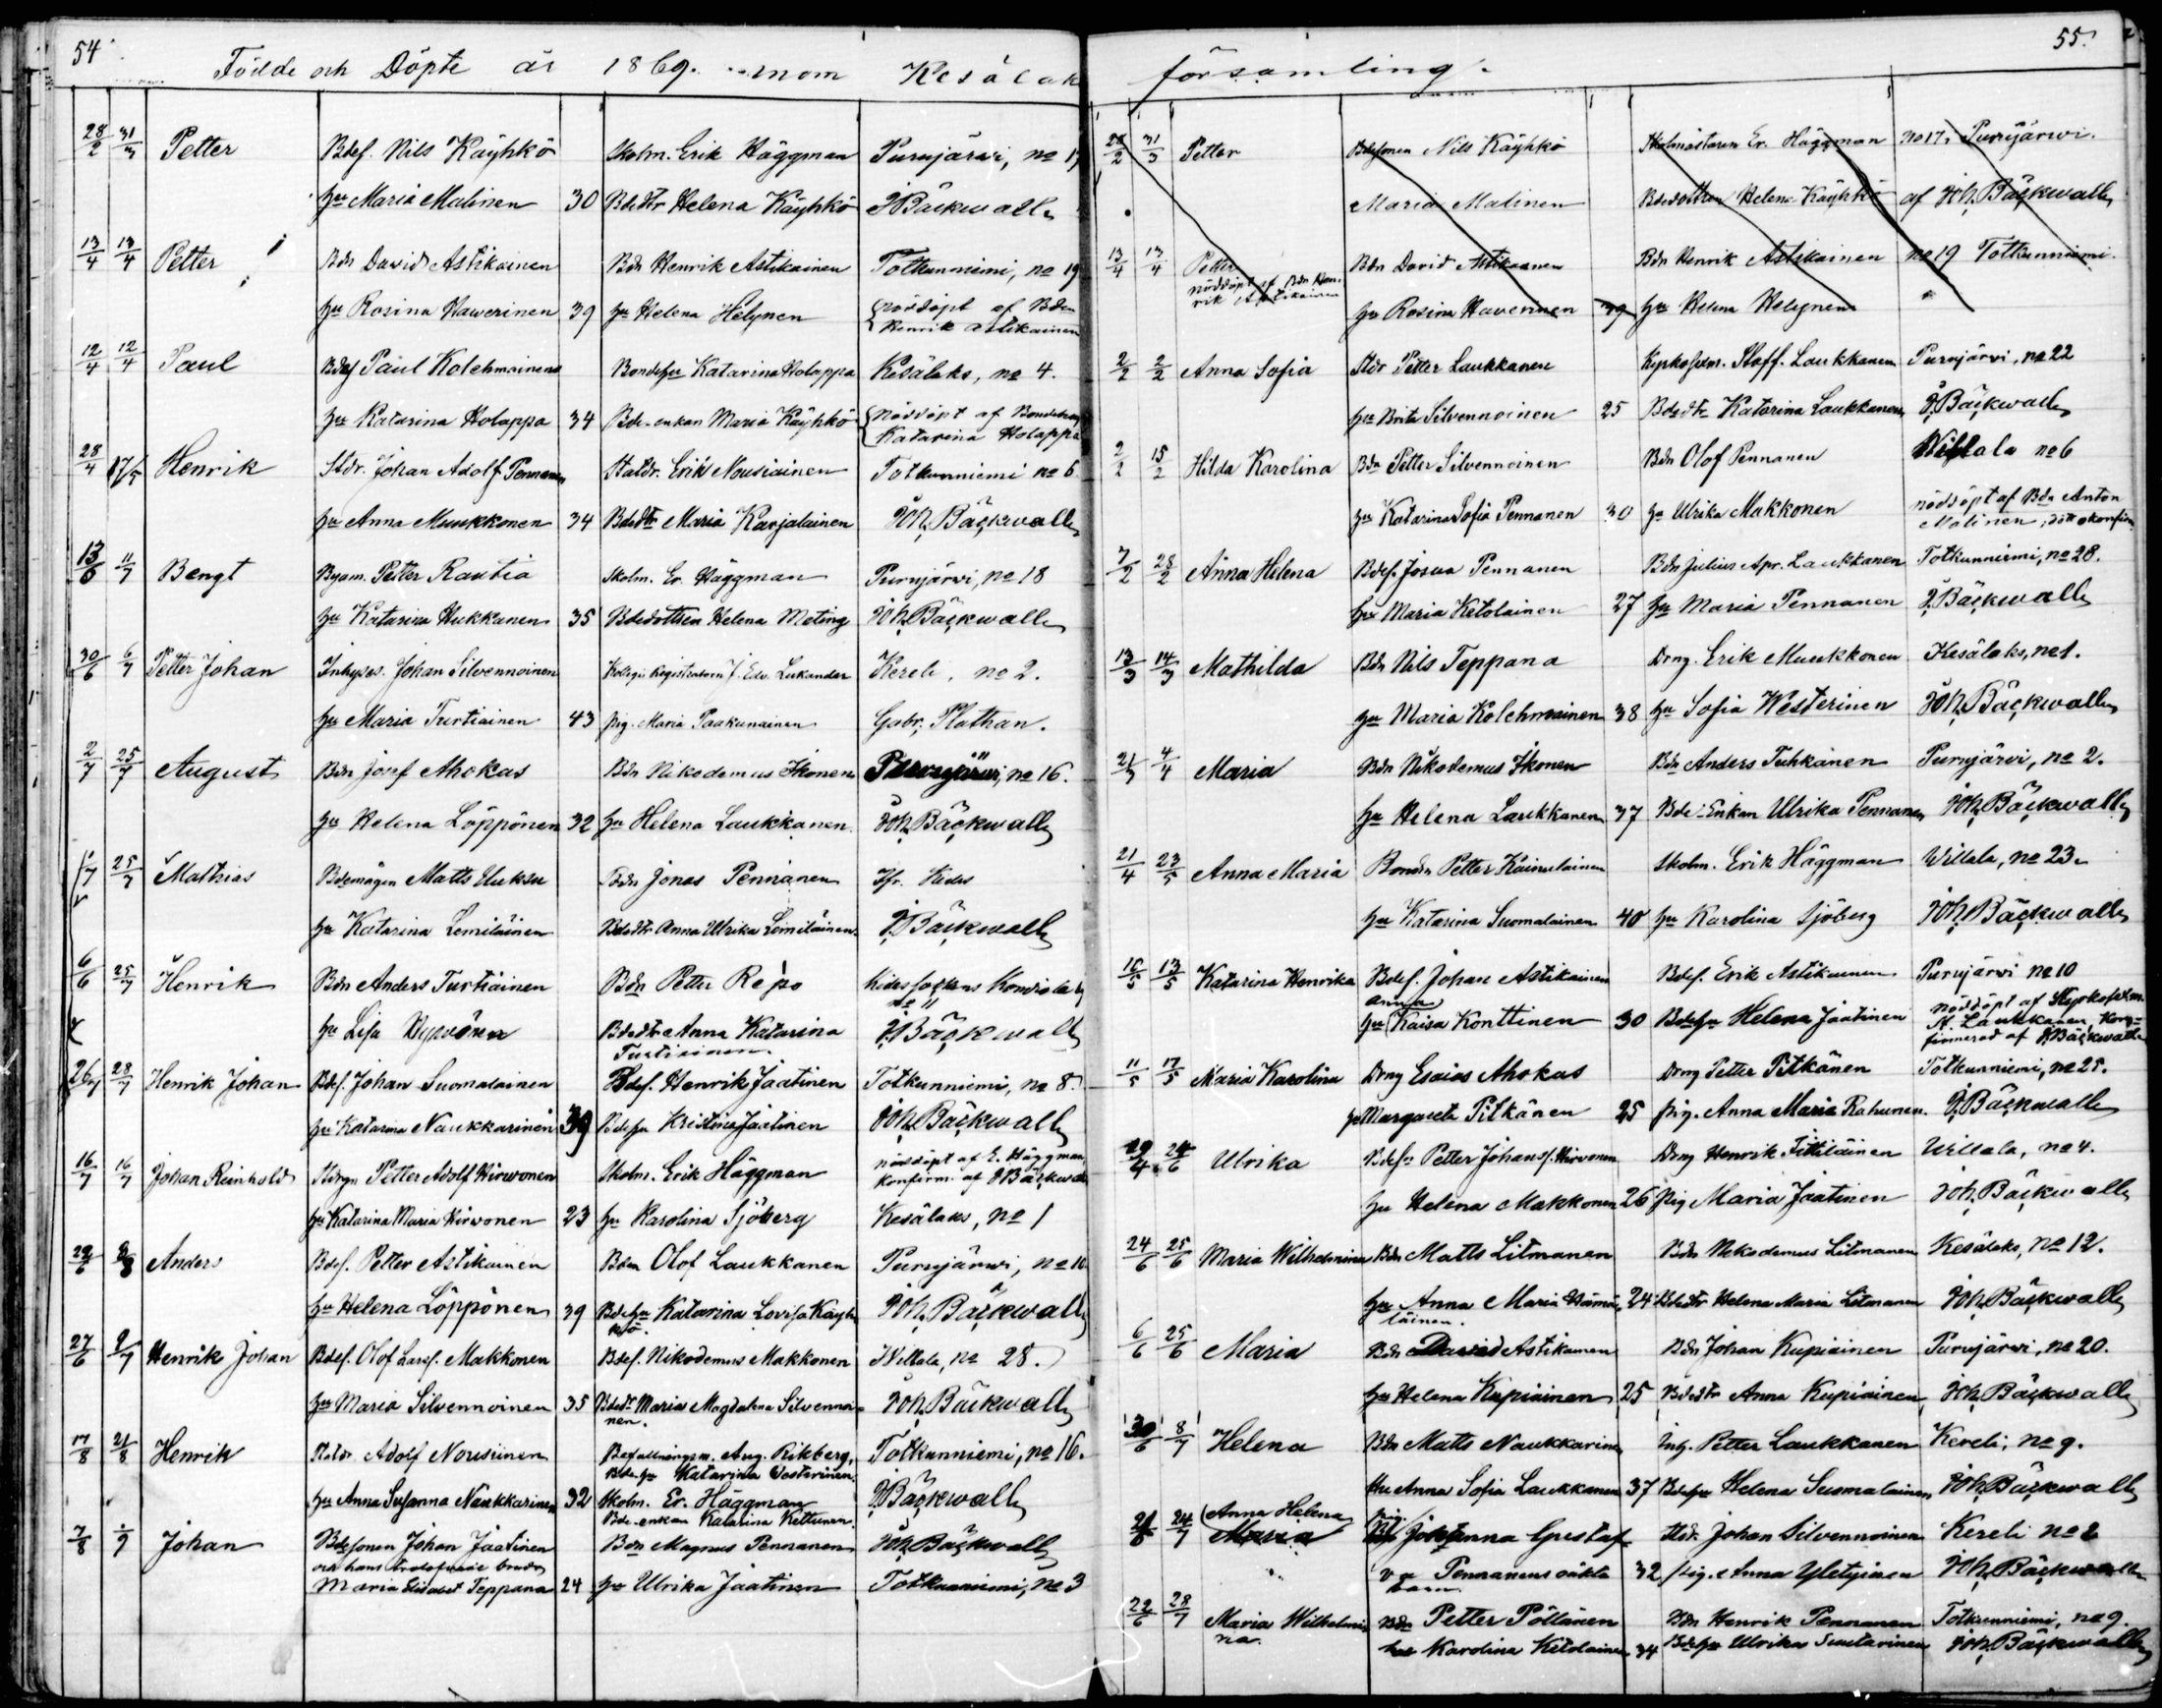 54.
Födde och Döpte år 1869. inom Kesälak
28/2 31/3 Petter Bdes. Nils Käyhkö Skolm. Erik Häggman Purujärwi, no 17
hu Maria Malinen 30 Bdedtr Helena Käyhkö J Bäckwall
13/4 13/4 Petter Bdn David Astikainen Bdn Henrik Astikainen Totkunniemi, no 19
hu Rosina Hawerinen 39 hu Helena Helynen nöddöpt af Bden
Henrik Astikainen
12/4 12/4 Paul Bdes Paul Kolehmainen Bondehu Katarina Holappa Kesälaks, no 4.
hu Katarina Holappa 34 Bde-enkan Maria Käyhkö nöddöpt af Bondehu
Katarina Holappa
28/4 17/5 Henrik Stdr. Johan Adolf Pennanen Statdr. Erik Nousiainen Totkunniemi no 6
hu Anna Muukkonen 34 Bdedtr Maria Karjalainen Joh. Bäckwall
13/6 11/7 Bengt Byam. Petter Rautia Skolm. Er. Häggman Purujärvi, no 18
hu Katarina Hukkanen 35 Bdedottren Helena Meting Joh. Bäckwall
30/6 6/7 Petter Johan Inhyses. Johan Silvennoinen Kollegii Registratorn J. Edv. Lukander Kereli, no 2.
hu Maria Turtiainen 43 pig. Maria Paakunainen Gabr. Plathan.
2/7 25/7 August Bdn Josef Ahokas Bdn Nikodemus Ikonen Purujärwi, no 16.
hu Helena Löppönen 32 hu Helena Laukkanen Joh. Bäckwall
1/7 25/7 Mathias Bdemågen Matts Uuksu Bdn Jonas Pennanen Ifr. Kides
hu Katarina Lemiläinen Bdedtr Anna Ulrika Lemiläinen J. Bäckwall
6/6 25/7 Henrik Bdn Anders Turtiainen Bdn Petter Repo Kides sockens
no 11
hu Lisa Hyvönen Bdedtr Anna Katarina J. Bäckwall
Turtiainen
26/7 28/7 Henrik Johan Bdes. Johan Suomalainen Bdes. Henrik Jaatinen Totkunniemi, no 8.
hu Katarina Naukkarinen 39 Bdehu Kristina Jaatinen Joh. Bäckwall
16/7 16/7 Johan Reinhold Stdrgn Petter Adolf Hirwonen Skolm. Erik Häggman nöddöpt af E. Häggman,
konfirm. af J Bäckwall
hu Katarina Maria Hirwonen 23 hu Karolina Sjöberg Kesälaks, no 1
Anders Bdes. Petter Astikainen Bden Olof Laukkanen Purujärwi, no 10
hu Helena Löppönen 39 Bdehu Katarina Lovisa Käyh Joh. Bäckwall
kö.
27/6 Henrik Johan Bdes. Olof Larss. Makkonen Bdes. Nikodemus Makkonen Willala, no 28.
hu Maria Silvennoinen 35 Bdedtr Maria Magdalena Silvennoi- Joh. Bäckwall
nen.
17/8 21/8 Henrik Statdr Adolf Nousiinen Befallningsm. Aug. Rikberg, Totkunniemi, no 16.
Bdehu Katarina Westerinen.
hu Anna Susanna Naukkarinen 32 Skolm. Er. Häggman J. Bäckwall
Bde-enkan Katarina Kettunen.
Johan Bdesonen Johan Jaatinen Bdn Magnus Pennanen Joh. Bäckwall
och hans trolofwade brud
Maria Elisabet Teppana 24 hu Ulrika Jaatinen Totkunniemi, no 3
55.
församling.
28/2 31/3 Petter Bdesonen Nils Käyhkö Skolmästaren Er. Häggman no 17, Purujärwi.
Maria Malinen Bdedottren Helena Käyhkö af Joh. Bäckwall
13/4 13/4 Petter Bdn David Astikainen Bdn Henrik Astikainen no 19 Totkunniemi.
nöddöpt af Bdn Hen-
rik Astikainen
hu Rosina Haverinen 39 hu Helena Helynen
2/2 2/2 Anna Sofia Stdr Petter Laukkanen Kyrkoförm. Staff. Laukkanen Purujärvi, no 22
hu Brita Silvennoinen 25 Bdedtr Katarina Laukkanen J. Bäckwall
2/2 15/2 Hilda Karolina Bdn Petter Silvennoinen Bdn Olof Pennanen Willala no 6
hu Katarina Sofia Pennanen 30 hu Ulrika Makkonen nöddöpt af Bdn Anton
Malinen,
7/2 28/2 Anna Helena Bdes. Josua Pennanen Bdn Julius Apr. Laukkanen Totkunniemi, no 28.
hu Maria Ketolainen 27 hu Maria Pennanen J. Bäckwall
13/3 14/3 Mathilda Bdn Nils Teppana Dräng. Erik Muukkonen Kesälaks, no 1.
hu Maria Kolehmainen 38 hu Sofia Westerinen Joh. Bäckwall
21/3 4/4 Maria Bdn Nikodemus Ikonen Bdn Anders Tuhkanen Purujärvi, no 2.
hu Helena Laukkanen 37 Bde-Enkan Ulrika Pennanen Joh. Bäckwall
21/4 23/5 Anna Maria Bonden Petter Kainulainen Skolm. Erik Häggman Willala, no 23.
hu Katarina Suomalainen 40 hu Karolina Sjöberg Joh. Bäckwall
13/5 Katarina Henrika Bdes. Johan Astikainen Bdes. Erik Astikainen Purujärvi no 10
Anna
hu Kaisa Konttinen 30 Bdehu Helena Jaatinen nöddöpt af Kyrkoförm.
St. Laukkanen, kon-
firmerad af J. Bäckwall
11/5 17/5 Maria Karolina Dräng Esaias Ahokas Dräng Petter Pitkänen Totkunniemi, no 25.
hu Margareta Pitkänen 25 pig. Anna Maria Rahunen. J. Bäckwall
Ulrika Bdesn Petter Johans. Hirvonen Dräng Henrik Tittiläinen Willala, no 4.
hu Helena Makkonen 26 Pig Maria Jaatinen Joh. Bäckwall
24/6 25/6 Maria Wilhelmina Bdn Matts Litmanen Bdn Nikodemus Litmanen Kesälaks, no 12.
hu Anna Maria Hämä- 24 Bdedtr Helena Maria Litmanen Joh. Bäckwall
läinen.
6/6 25/6 Maria Bdn David Astikainen Bdn Johan Kupiainen Purujärwi, no 20.
hu Helena Kupiainen 25 Bdedtr Anna Kupiainen Joh. Bäckwall
30/6 8/7 Helena Bdn Matts Naukkarinen Inh. Petter Laukkanen Kereli, no 9.
Hu Anna Sofia Laukkanen 37 Bdehu Helena Suomalainen Joh. Bäckwall
24/7 Anna Helena pig.
Maria Johanna Gustaf Stdr. Johan Silvennoinen Kereli no 2
Pennanens oäkta 32 pig. Anna Yletyinen Joh. Bäckwall
barn
22/6 28/7 Maria Wilhelmi- Bdn Petter Pöllänen Bdn Henrik Pennanen Totkunniemi, no 9.
na. hu Karolina Ketolainen 34 Bdehu Ulrika Suutarinen Joh. Bäckwall